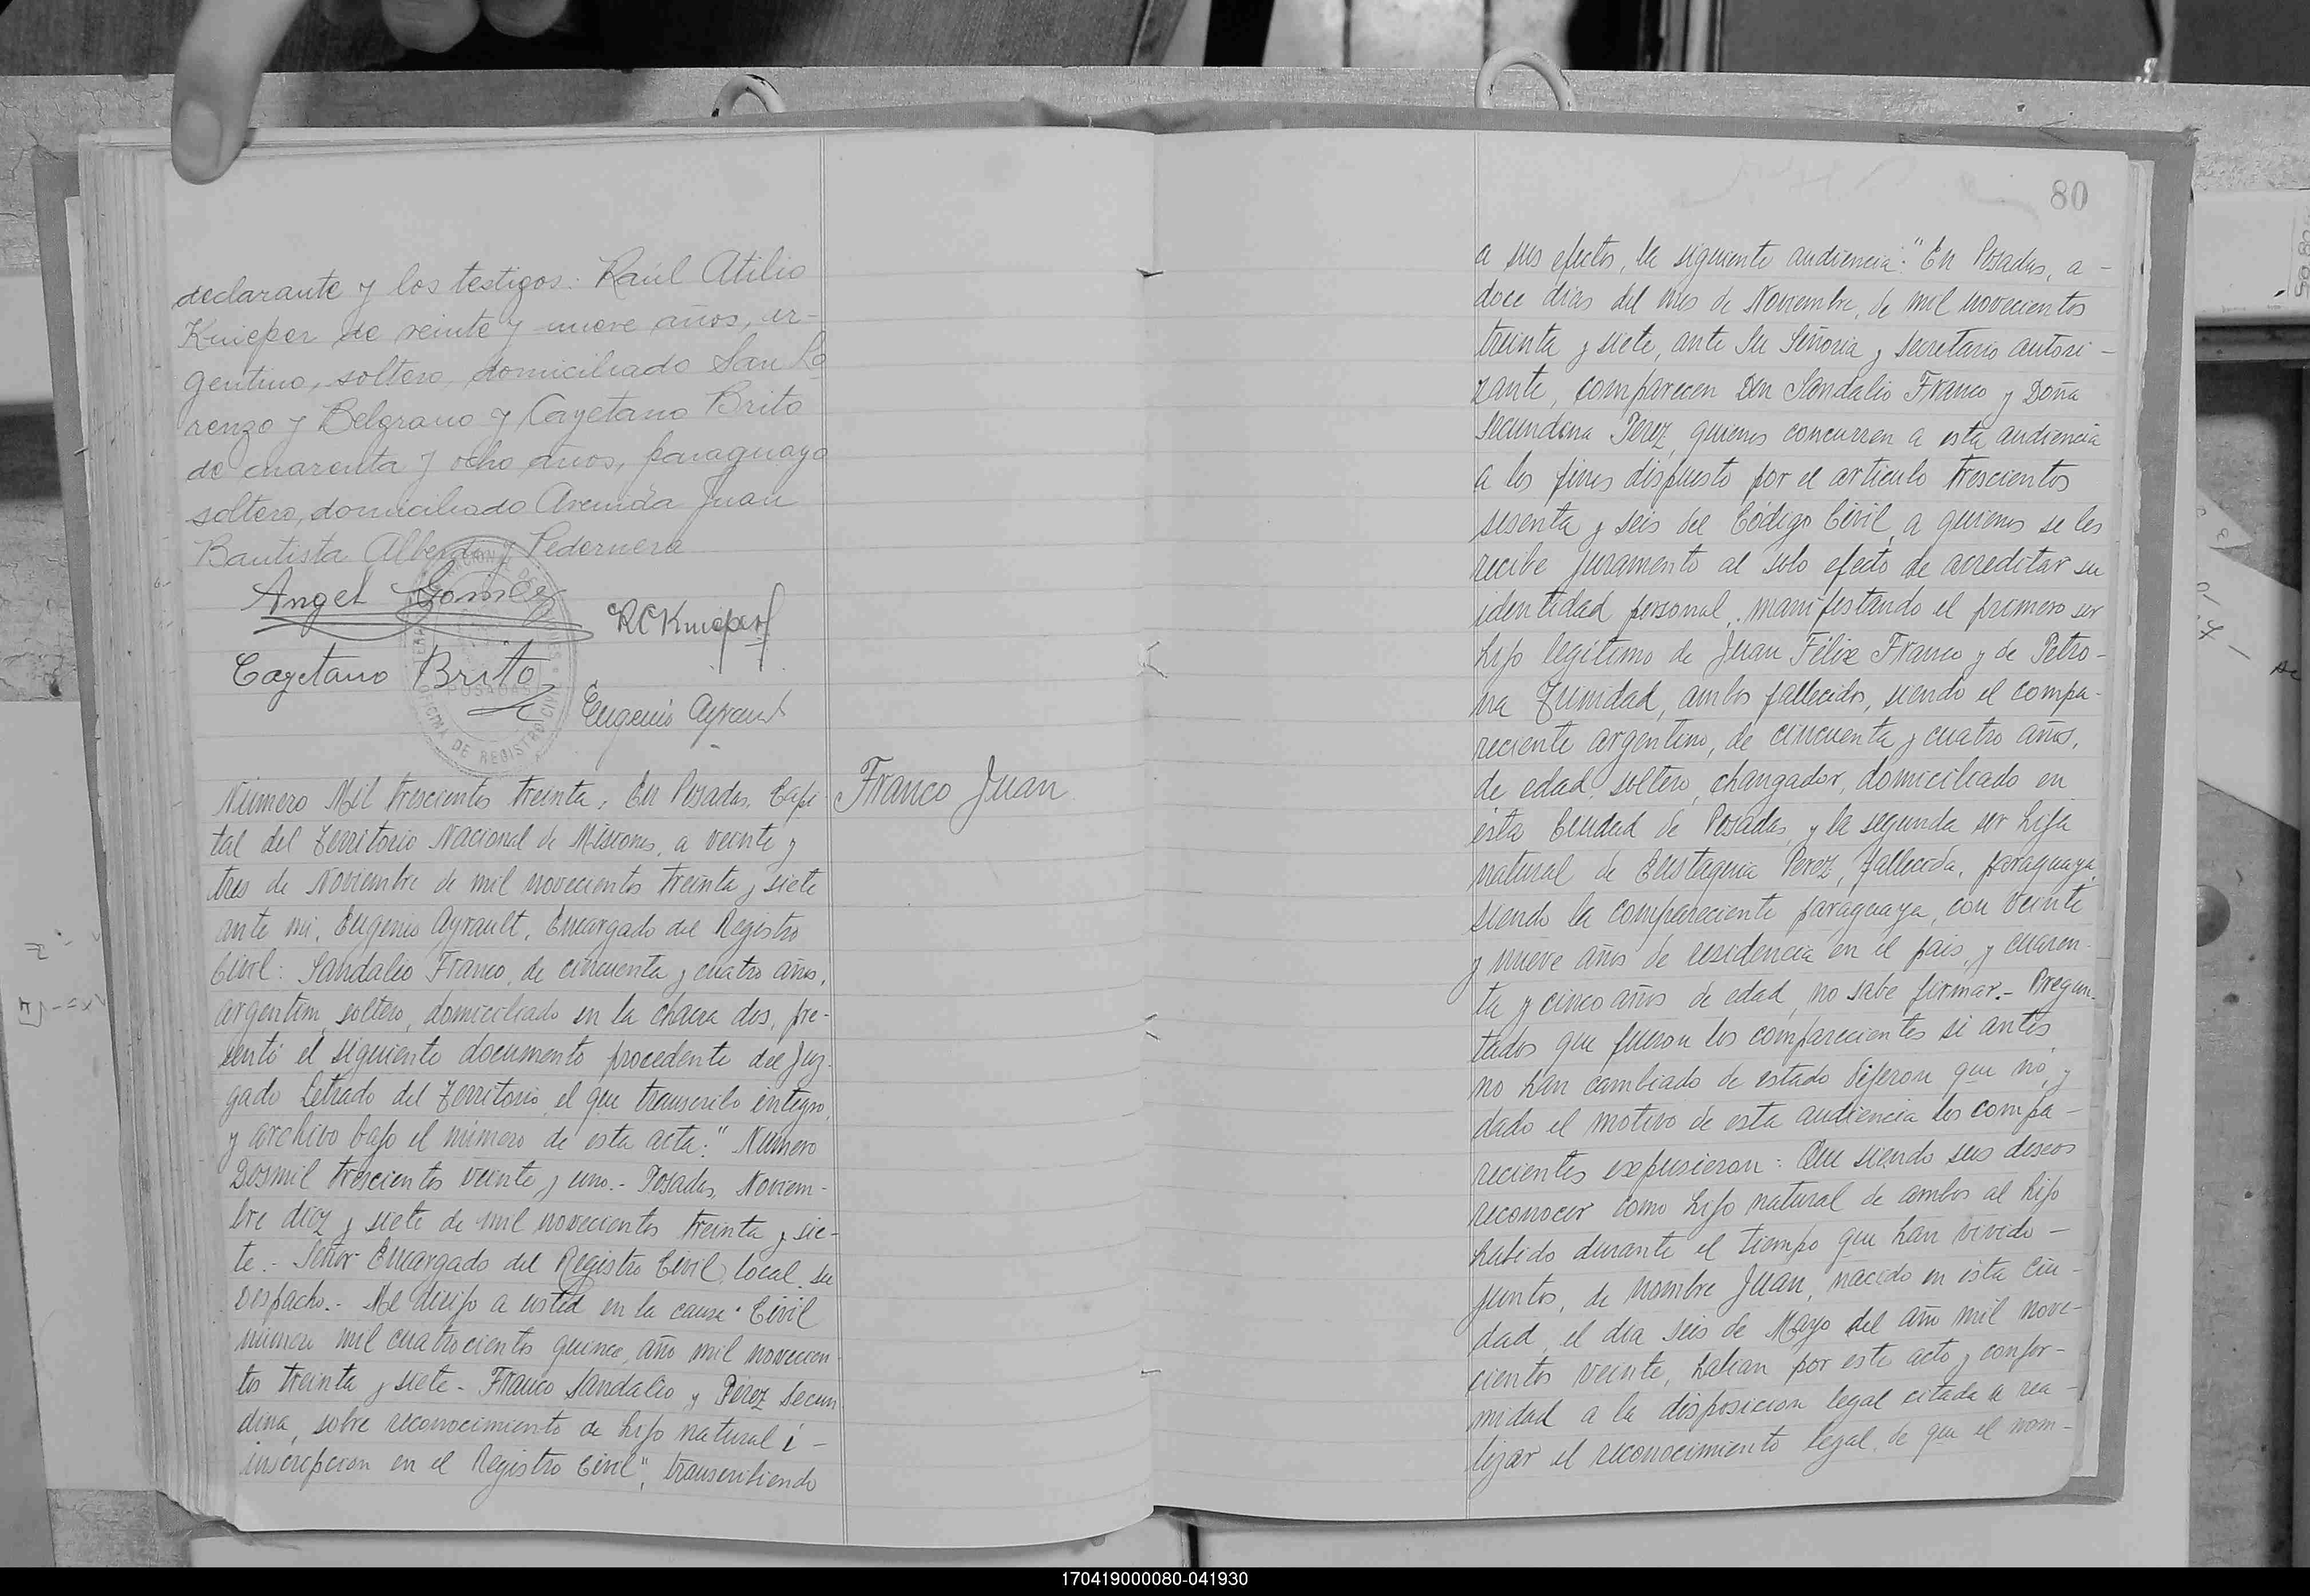 declarante y los testigos: Raúl Atilio
Knieper de veinte y nueve años, ar-
gentino, soltero, domiciliado San Lo
renzo y Belgrano y Cayetano Brito
de cuarenta y ocho años, paraguayo
soltero, domiciliado Avenida Juan
Bautista Alberdi y Pedernera
Angel Gomez
RCKnieper
Cayetano Brito
Eugenio Ayrault
OFICINA DE REGISTRO CIVIL
POSADAS
Número Mil trescientos treinta. En Posadas, Capi
tal del Territorio Nacional de Misiones, a veinte y
tres de Noviembre de mil novecientos treinta y siete
ante mi, Eugenio Ayrault, Encargado del Registro
Civil: Sandalio Franco, de cincuenta y cuatro años,
argentino, soltero, domiciliado en la chacra dos, pre-
sentó el siguiente documento procedente del Juz-
gado Letrado del Territorio, el que transcribo integro,
y archivo bajo el número de esta acta: "Número
Dosmil trescientos veinte y uno.- Posadas, Noviem-
bre diez y siete de mil novecientos treinta y sie-
te.- Señor Encargado del Registro Civil local. su
Despacho.- Me dirijo a usted en la causa "Civil
número mil cuatrocientos quince, año mil novecien
tos treinta y siete - Franco Sandalio y Pérez Secun
dina, sobre reconocimiento de hijo natural é -
inscripcion en el Registro Civil", transcribiendo
Franco Juan
80
a sus efectos, la siguiente audiencia: "En Posadas, a -
doce dias del mes de Noviembre, de mil novecientos
treinta y siete, ante Su Señoria y secretario autori -
zante, comparecen Don Sandalio Franco y Doña
Secundina Perez, quienes concurren a esta audiencia
a los fines dispuesto por el articulo trescientos
sesenta y seis del Código Civil, a quienes se les
recibe juramento al solo efecto de acreditar su
identidad personal, manifestando el primero ser
hijo legitimo de Juan Félix Franco y de Petro-
na Trinidad, ambos fallecidos, siendo el compa-
reciente argentino, de cincuenta y cuatro años,
de edad, soltero, changador, domiciliado en
ésta Ciudad de Posadas, y la segunda ser hija
natural de Eustaquia Perez, fallecida, paraguaya,
siendo la compareciente paraguaya, con veinte
y nueve años de residencia en el pais, y cuaren-
ta y cinco años de edad, no sabe firmar.- Pregun-
tados que fueron los comparecientes si antes
no han cambiado de estado dijeron que nó, y
dado el motivo de esta audiencia los compa -
recientes expusieron: Que siendo sus deseos
reconocer como hijo natural de ambos al hijo
habido durante el tiempo que han vivido -
juntos, de nombre Juan, nacido en esta ciu -
dad, el dia seis de Mayo del año mil nove-
cientos veinte, habian por este acto y confor-
midad a la disposicion legal citada a rea -
lizar el reconocimiento legal, de que el nom-
170419000080-041930